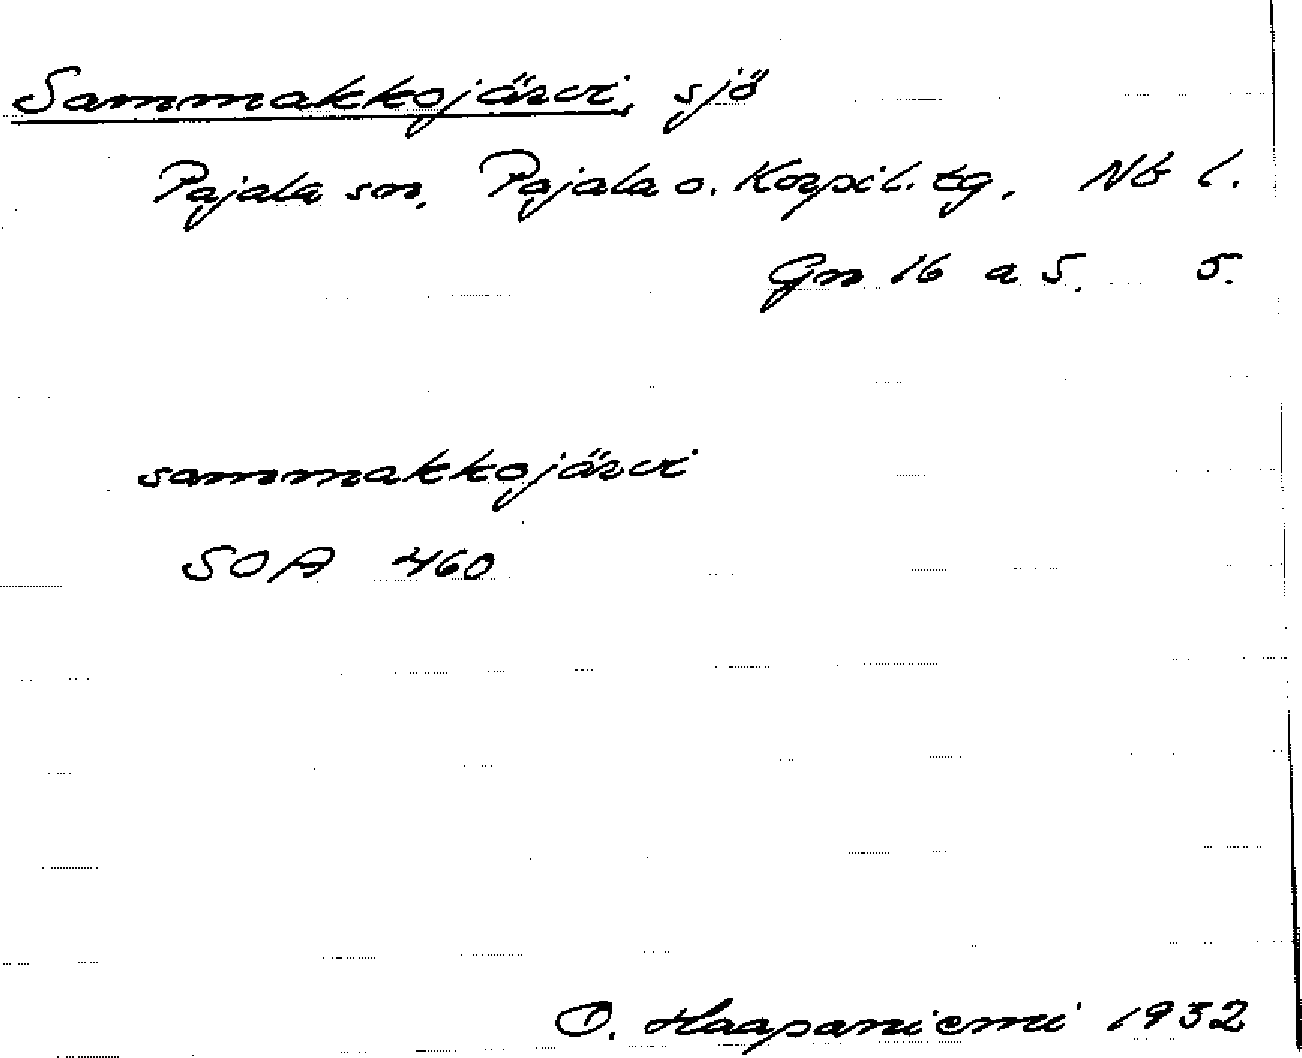 Sammakkojärvi, sjö
Pajala sn, Pajala o. Korpil. tg, Nb l.
Gn 16 a 5. 5.
sammakkojärvi
SOA 460
O. Haapaniemi 1932